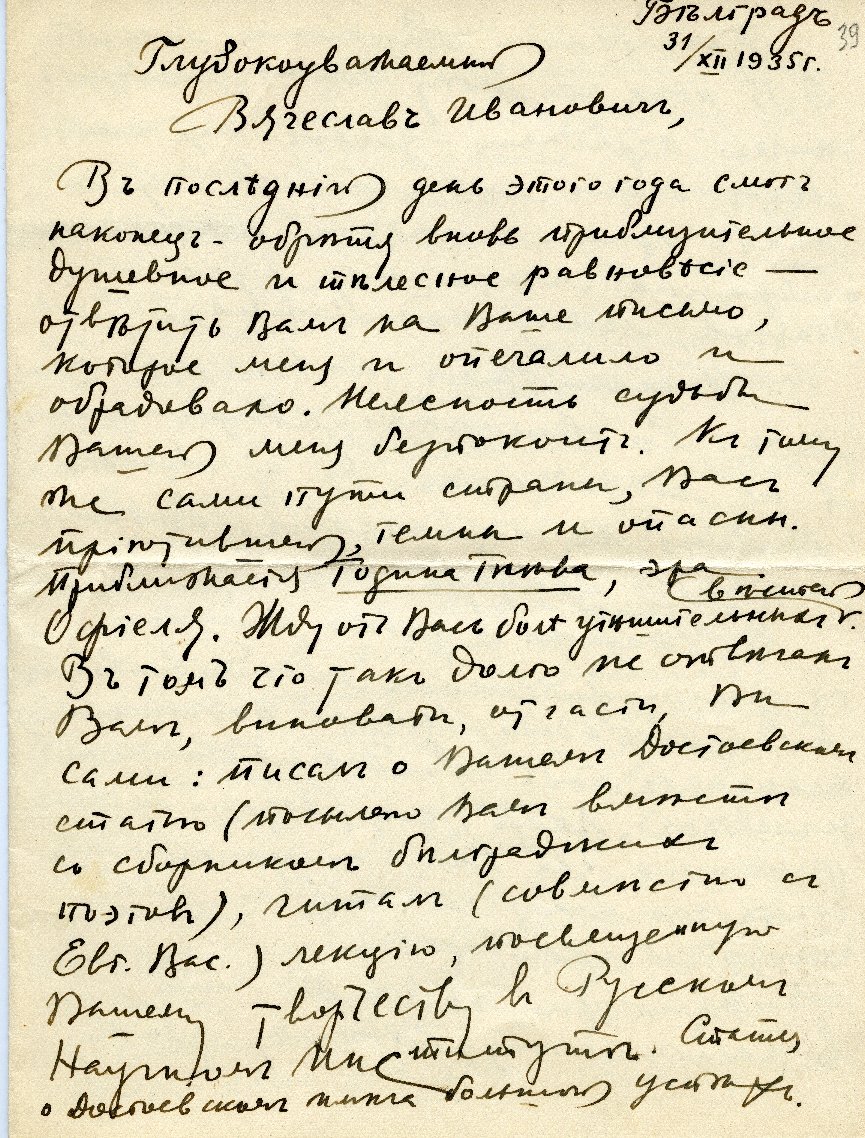 Бѣлградъ
39
31/XII 1935 г.
Глубокоуважаемый
Вячеславъ Ивановичъ,
Въ послѣдній день этого года смогъ
наконецъ - обрѣтя вновь приблизительное
душевное и тѣлесное равновѣсіе —
отвѣтить Вамъ на Ваше письмо,
которое меня и опечалило и
обрадовало. Неясность судьбы
Вашей меня безпокоитъ. Къ тому
же сами пути страны, Васъ
пріютившей, темны и опасны.
Приближается Година Гнѣва, эра
Офіеля. Жду отъ Васъ болѣе утѣшительныхъ
вѣстей
Въ томъ что такъ долго не отвѣчалъ
Вамъ, виноваты, отчасти, Вы
сами: писалъ о Вашемъ Достоевскомъ
статью (посылаю Вамъ вмѣстѣ
со сборникомъ бѣлградскихъ
поэтовъ), читалъ (совмѣстно съ
Евг. Вас.) лекцію, посвященную
Вашему творчеству въ Русскомъ
Научномъ Институтѣ. Статья
о Достоевскомъ имѣла большой успѣхъ.